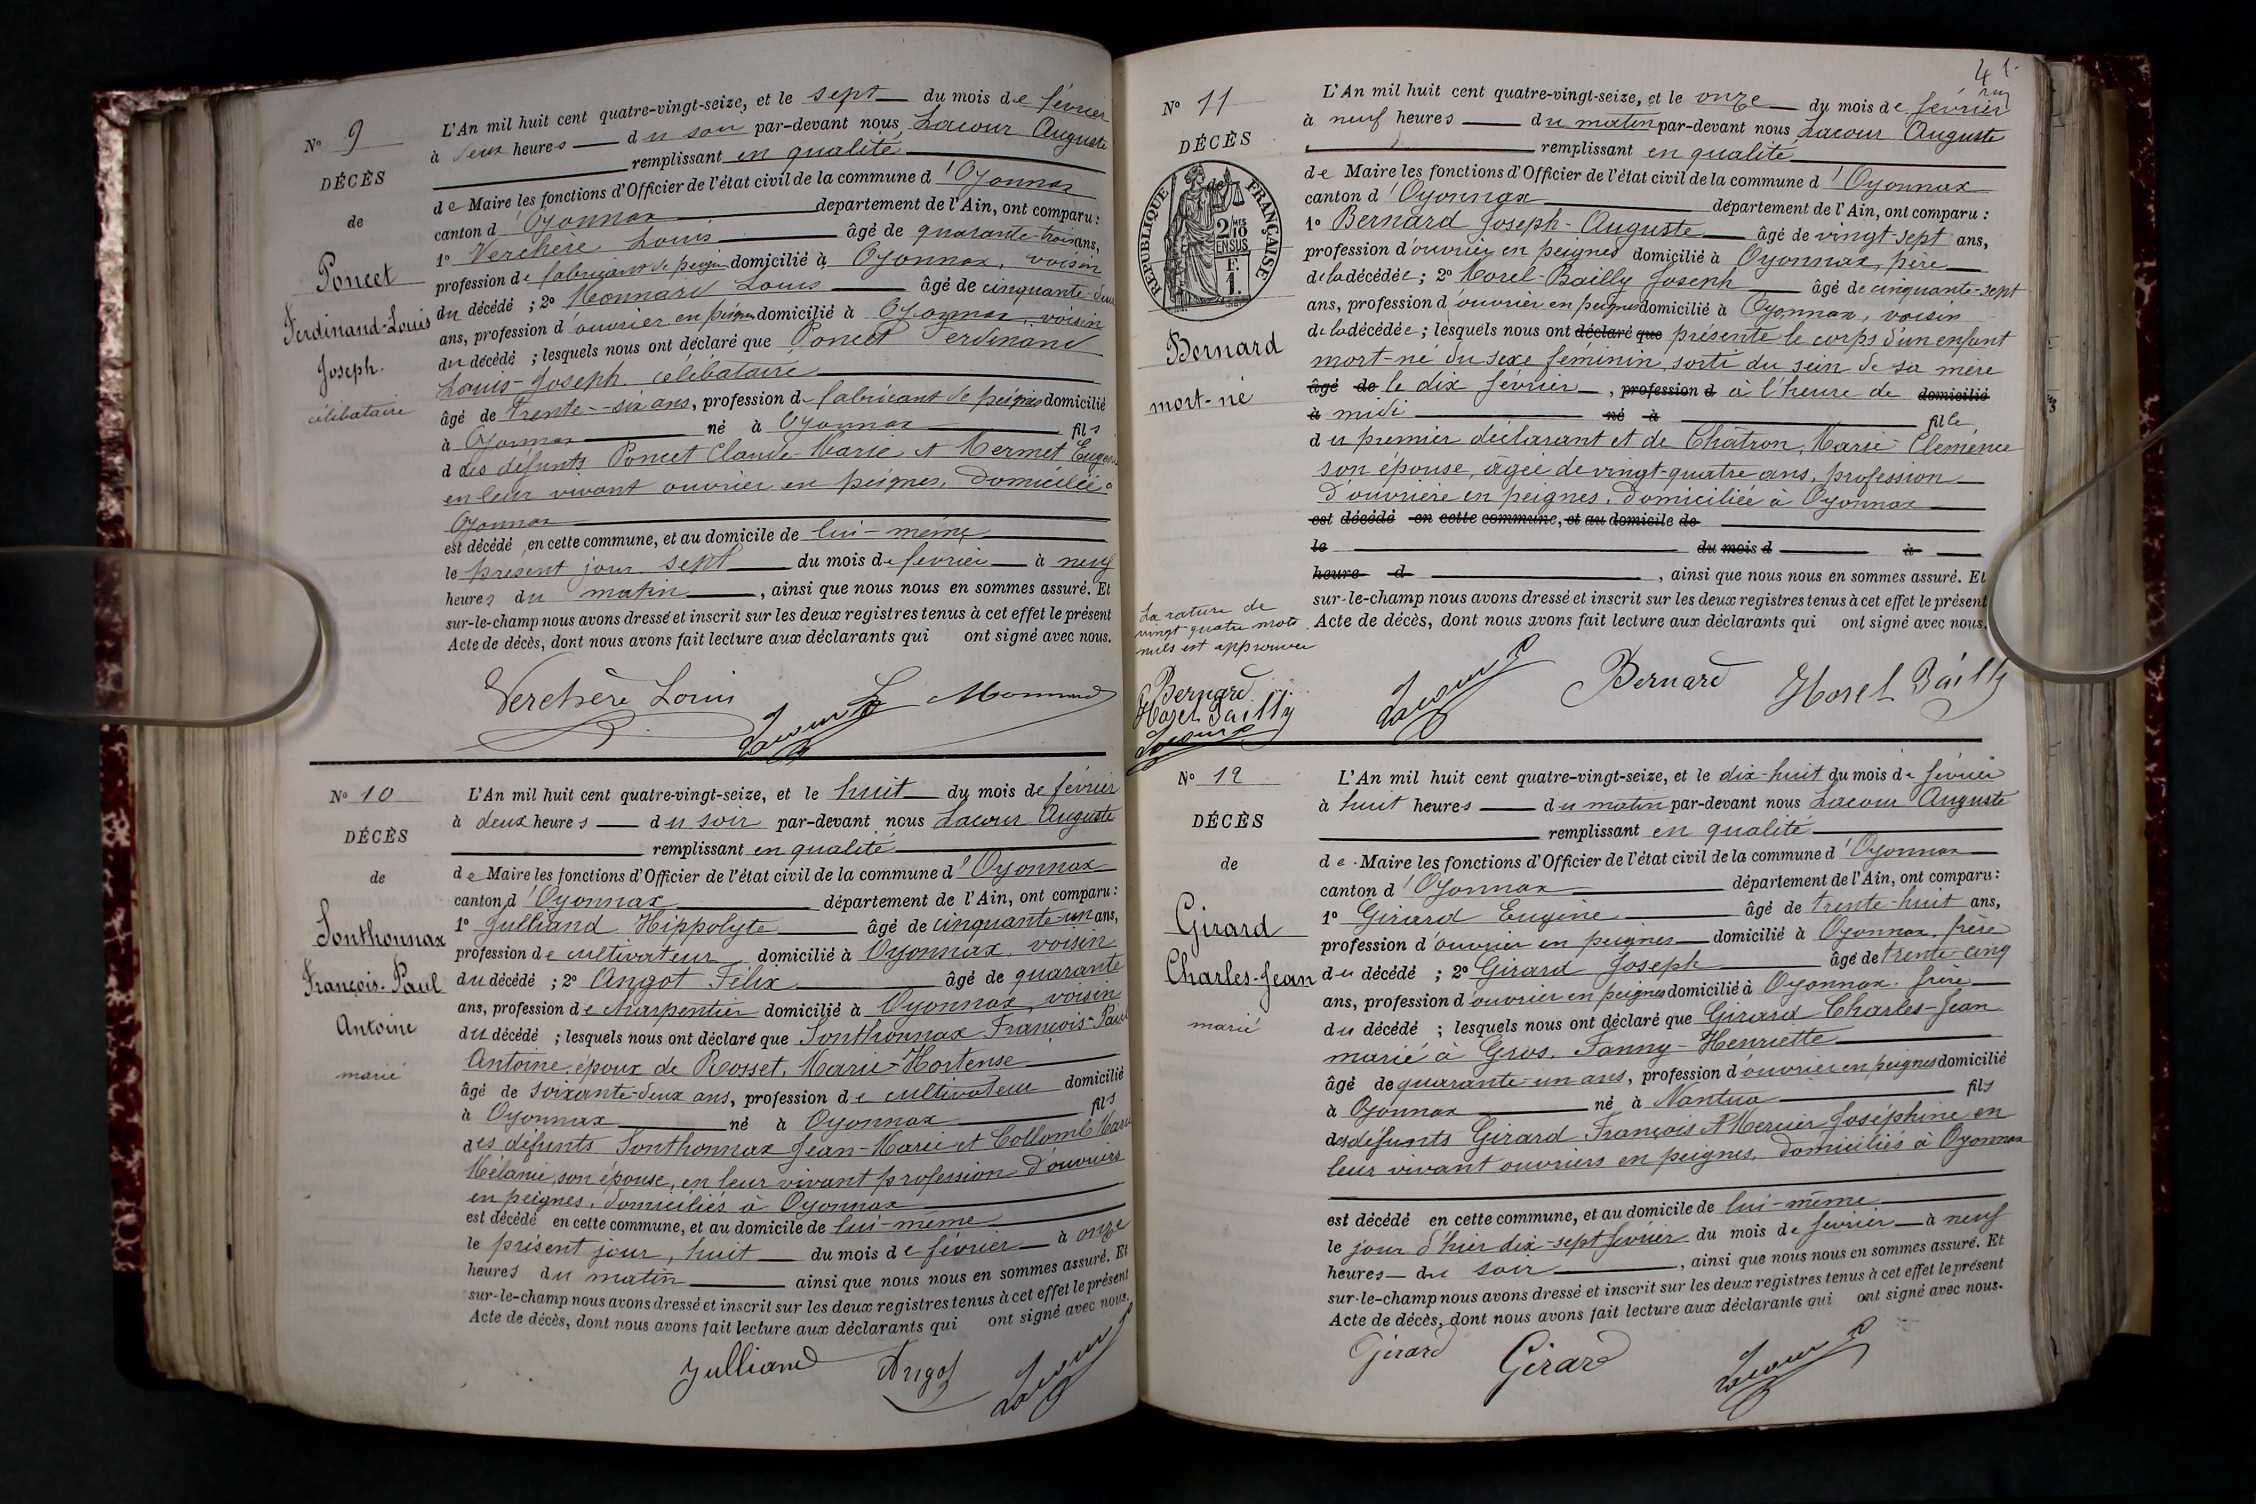 N° 9
DÉCÈS
de
Poncet
Ferdinand-Louis
Joseph.
célibataire
L'An mil huit cent quatre-vingt-seize, et le sept du mois de février
à deux heures du soir par-devant nous, Lacour Auguste
remplissant en qualité
de Maire les fonctions d'Officier de l'état civil de la commune d'Oyonnax
canton d'Oyonnax département de l'Ain, ont comparu :
1° Verchère Louis âgé de quarante-trois ans,
profession de fabricant de peignes domicilié à Oyonnax, voisin
du décédé ; 2° Monnard Louis âgé de cinquante-deux
ans, profession d'ouvrier en peignes domicilié à Oyonnax, voisin
du décédé ; lesquels nous ont déclaré que Poncet Ferdinand
Louis-Joseph, célibataire
âgé de trente-six ans, profession de fabricant de peignes domicilié
à Oyonnax né à Oyonnax fils
d des défunts Poncet Claude-Marie et Mermet Eugénie
en leur vivant ouvrier en peignes, domiciliés
Oyonnax
est décédé en cette commune, et au domicile de lui-même
le présent jour sept du mois de février à neuf
heures du matin, ainsi que nous nous en sommes assuré. Et
sur-le-champ nous avons dressé et inscrit sur les deux registres tenus à cet effet le présent
Acte de décès, dont nous avons fait lecture aux déclarants qui ont signé avec nous.
Verchère Louis Lacour L Monnard
N° 10
DÉCÈS
de
Sonthonnax
François-Paul
Antoine
marié
L'An mil huit cent quatre-vingt-seize, et le huit du mois de février
à deux heures du soir par-devant nous Lacour Auguste
remplissant en qualité
de Maire les fonctions d'Officier de l'état civil de la commune d'Oyonnax
canton d'Oyonnax département de l'Ain, ont comparu :
1° Julliand Hippolyte âgé de cinquante-un ans,
profession de cultivateur domicilié à Oyonnax, voisin
du décédé ; 2° Angot Félix âgé de quarante
ans, profession de charpentier domicilié à Oyonnax, voisin
du décédé ; lesquels nous ont déclaré que Sonthonnax François-Paul
Antoine, époux de Rosset, Marie-Hortense
âgé de soixante-deux ans, profession de cultivateur domicilié
à Oyonnax né à Oyonnax fils
des défunts Sonthonnax Jean-Marie et Collomb Marie
Mélanie, son épouse, en leur vivant profession d'ouvriers
en peignes, domiciliés à Oyonnax
est décédé en cette commune, et au domicile de lui-même
le présent jour, huit du mois de février à onze
heures du matin ainsi que nous nous en sommes assuré. Et
sur-le-champ nous avons dressé et inscrit sur les deux registres tenus à cet effet le présent
Acte de décès, dont nous avons fait lecture aux déclarants qui ont signé avec nous.
Julliand Angot Lacour
41
N° 11
DÉCÈS
de
RÉPUBLIQUE FRANÇAISE
2/10 EN SUS
F. 1.
Bernard
mort-né
L'An mil huit cent quatre-vingt-seize, et le onze du mois de février
à neuf heures du matin par-devant nous Lacour Auguste
remplissant en qualité
de Maire les fonctions d'Officier de l'état civil de la commune d'Oyonnax
canton d'Oyonnax département de l'Ain, ont comparu :
1° Bernard Joseph-Auguste âgé de vingt-sept ans,
profession d'ouvrier en peignes domicilié à Oyonnax, père
de la décédée ; 2° Morel-Bailly Joseph âgé de cinquante-sept
ans, profession d'ouvrier en peignes domicilié à Oyonnax, voisin
de la décédée ; lesquels nous ont déclaré que présenté le corps d'un enfant
mort-né du sexe féminin, sorti du sein de sa mère
âgé de le dix février, profession d à l'heure de domicilié
à midi né à fille
du premier déclarant et de Châtron, Marie-Clémence
son épouse, âgée de vingt-quatre ans, profession
d'ouvrière en peignes, domiciliée à Oyonnax
est décédé en cette commune, et au domicile de
le du mois d à
heure d , ainsi que nous nous en sommes assuré. Et
sur-le-champ nous avons dressé et inscrit sur les deux registres tenus à cet effet le présent
Acte de décès, dont nous avons fait lecture aux déclarants qui ont signé avec nous.
La rature de
vingt quatre mots
nuls est approuvée
Bernard
Morel Bailly
Lacour
Lacour Bernard Morel Bailly
N° 12
DÉCÈS
de
Girard
Charles-Jean
marié
L'An mil huit cent quatre-vingt-seize, et le dix-huit du mois de février
à huit heures du matin par-devant nous Lacour Auguste
remplissant en qualité
de Maire les fonctions d'Officier de l'état civil de la commune d'Oyonnax
canton d'Oyonnax département de l'Ain, ont comparu :
1° Girard Eugène âgé de trente-huit ans,
profession d'ouvrier en peignes domicilié à Oyonnax, frère
du décédé ; 2° Girard Joseph âgé de trente-cinq
ans, profession d'ouvrier en peignes domicilié à Oyonnax, frère
du décédé ; lesquels nous ont déclaré que Girard Charles-Jean
marié à Gros, Fanny-Henriette
âgé de quarante-un ans, profession d'ouvrier en peignes domicilié
à Oyonnax né à Nantua fils
des défunts Girard François et Mercier Joséphine en
leur vivant ouvriers en peignes, domiciliés à Oyonnax
est décédé en cette commune, et au domicile de lui-même
le jour d'hier dix-sept février du mois de février à neuf
heures du soir, ainsi que nous nous en sommes assuré. Et
sur-le-champ nous avons dressé et inscrit sur les deux registres tenus à cet effet le présent
Acte de décès, dont nous avons fait lecture aux déclarants qui ont signé avec nous.
Girard Girard Lacour